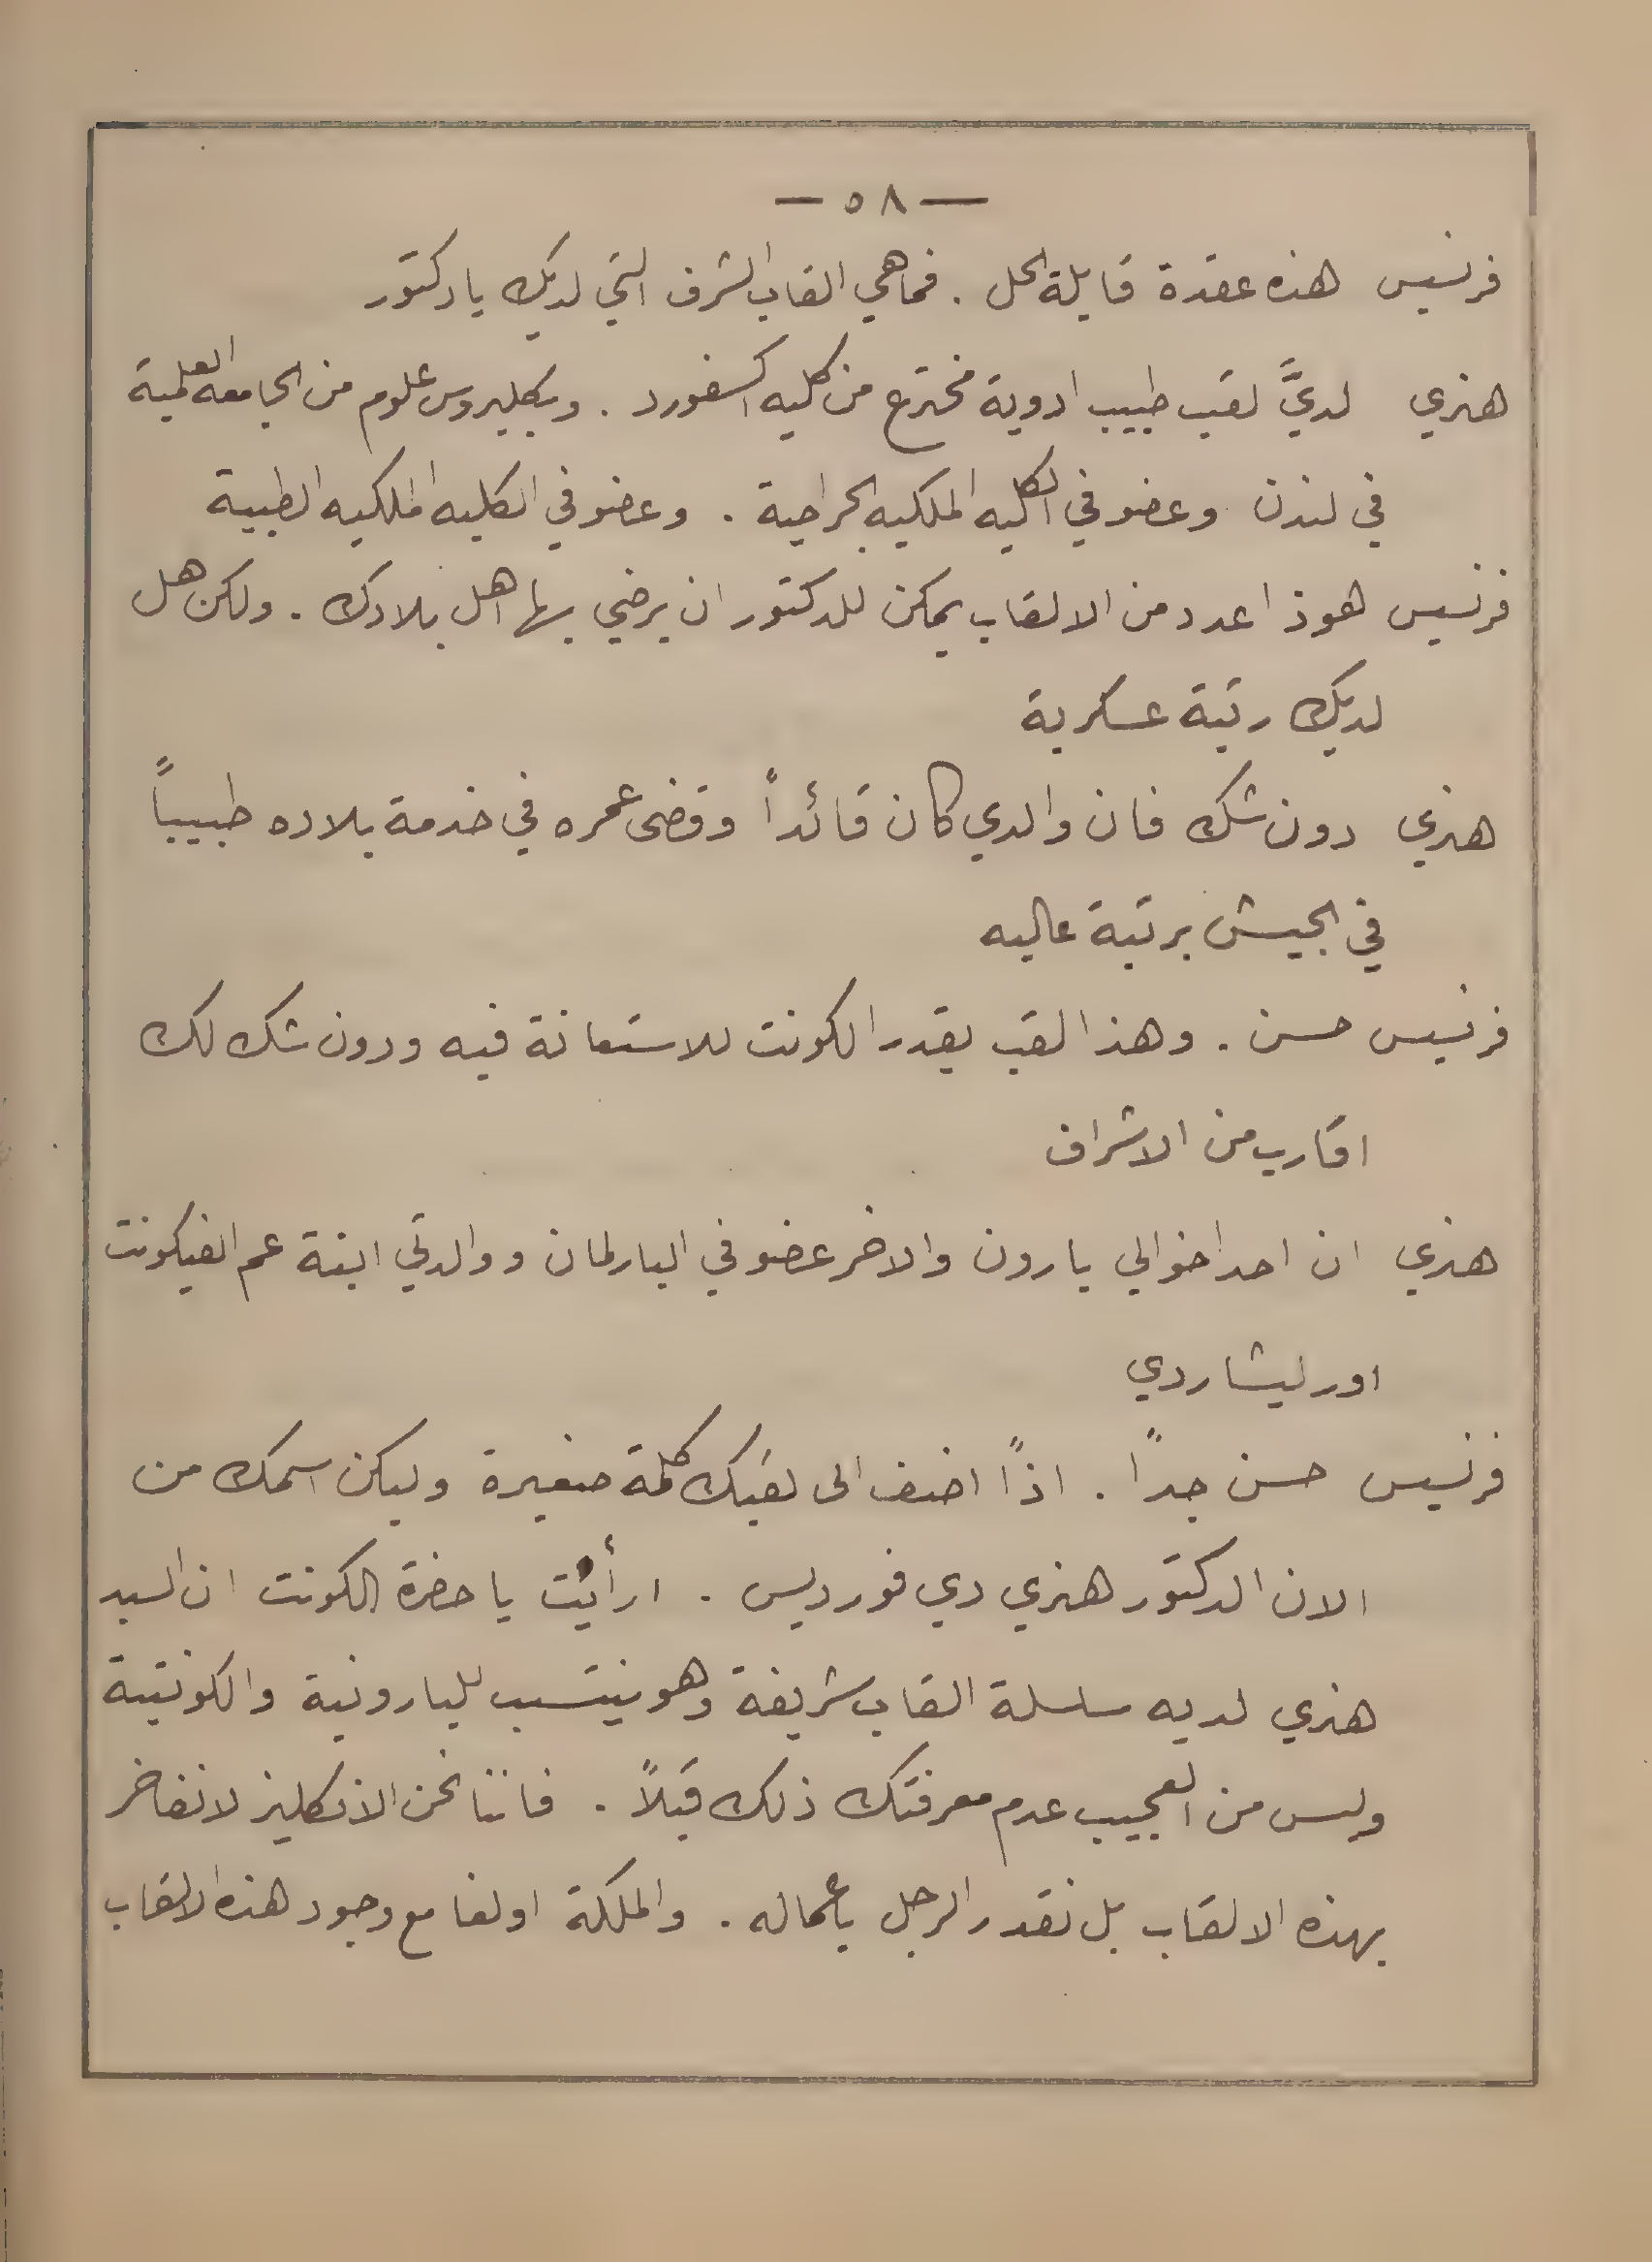 — ٥٨ —
فرنسيس هذه عقدة قابلة الحل . فما هي القاب الشرف التي لديك يا دكتور
هنري لديَّ لقب طبيب ادوية مخترع من كليه اكسفورد . وبكليروس علوم من الجامعه العلمية
في لندن وعضو في الكليه الملكيه الجراحية . وعضو في الكليه الملكيه الطبية
فرنسيس هوذا عدد من الالقاب يمكن للدكتور ان يرضي بها اهل بلادك . ولكن هل
لديك رتبة عسكرية
هنري دون شك فان والدي كان قائداً وقضى عمره في خدمة بلاده طبيباً
في الجيش برتبة عاليه
فرنسيس حسن . وهذا لقب يقدر الكونت للاستعانة فيه ودون شك لك
اقارب من الاشراف
هنري ان احد اخوالي بارون والاخر عضو في البارلمان ووالدتي ابنة عم الفيكونت
اورليشاردي
فرنسيس حسن جداً . اذاً اضف الى لقبك كلمة صغيرة وليكن اسمك من
الان الدكتور هنري دي فورديس . ارأيت يا حضرة الكونت ان السيد
هنري لديه سلسلة القاب شريفة وهو ينتسب للبارونية والكونتية
وليس من العجيب عدم معرفتك ذلك قبلاً . فاننا نحن الانكليز لا نفاخر
بهذه الالقاب بل نقدر الرجل باعماله . والملكة اولغا مع وجود هذه الالقاب